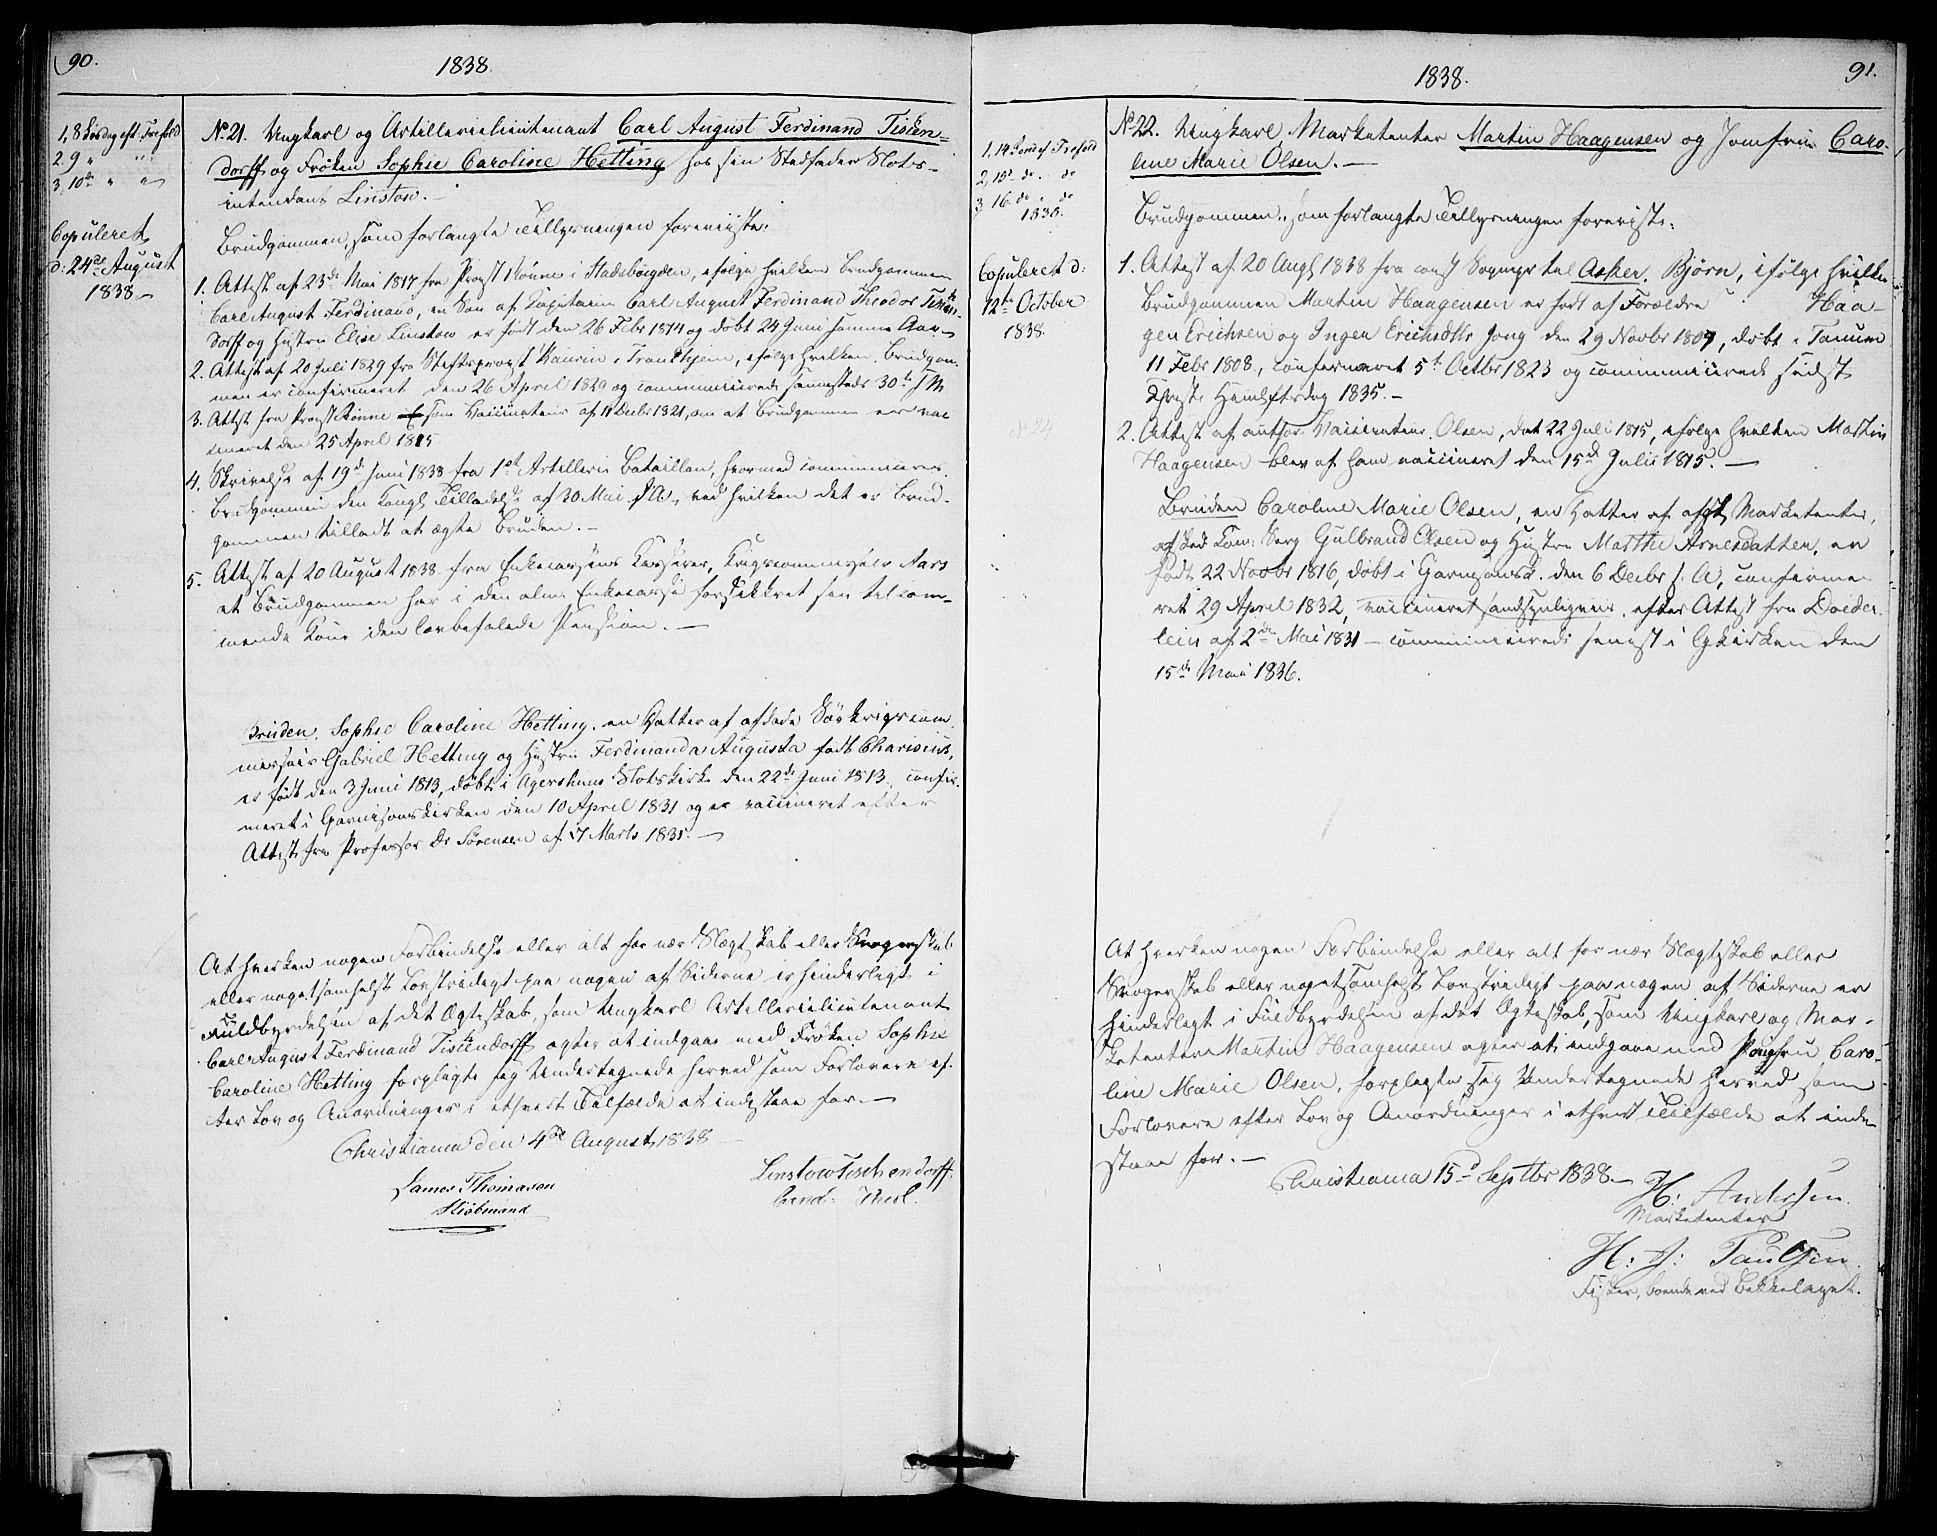 90.
1838.
1, 8 Søndag eft. Trefold
2. 9 " "
3, 10de " "
Copuleret
d: 24de August
1838.
No 21. Ungkarl og Artillerielieutenant Carl August Ferdinand Tischen-
dorff og Frøken Sophie Caroline Hetting hos sin Stedfader Slots-
intendant Linstow.
Brudgommen, som forlangte Tillysningen foreviiste:
1. Attest af 23de Mai 1817 fra Provst Rønne i Stadsbøigden, ifølge hvilken Brudgommen
Carl August Ferdinand, en Søn af Kapitaine Carl August Ferdinand Theodor Tischen-
dorff og Hustru Elise Linstow er født den 26 Febr 1814 og døbt 24 Juni samme Aar
2. Attest af 20 Juli 1829 fra Stiftsprovst Kaurin i Trondhjem, ifølge hvilken Brudgom-
men er confirmeret den 26 April 1829 og communicerede sammesteds 30te s. M
3. Attest fra Provst Rønne som Vaccinateur af 11 Decbr 1821, om at Brudgommen er vac
cineret den 25 April 1815.
4. Skrivelse af 19de Juni 1838 fra 1ste Artillerie Bataillon, hvormed communiceres
Brudgommen den Kongl Tilladelse af 30 Mai s. A., ved hvilken det er Brud-
gommen tilladt at ægte Bruden.
5. Attest af 20 August 1838 fra Enkecassens Kasserer, Krigscommissair Aars
at Brudgommen har i den alm. Enkecasse forsikkret sin tilkom-
mende Kone den lovbefalede Pension.
Bruden. Sophie Caroline Hetting. en Datter af afdøde Søekrigscom
missair Gabriel Hetting og Hustru Ferdinanda Augusta født Charisius,
er født den 3 Juni 1813, døbt i Agershuus Slotskirke den 22de Juni 1813, confir-
meret i Garnisonskirken den 10 April 1831 og er vaccineret efter
Attest fra Professor Dr Sørensen af 17 Marts 1831.
At hverken nogen Forbindelse eller alt for nær Slægtskab eller Svogerskab
eller noget somhelst Lovstridigt paa nogen af Siderne er hinderligt i
Fuldbyrdelsen af det Ægteskab, som Ungkarl Artillerielieutenant
Carl August Ferdinand Tischendorff agter at indgaae med Frøken Sophie
Caroline Hetting forpligte sig Undertegnede herved som Forlovere ef-
ter Lov og Anordninger i ethvert Tilfælde at indestaae for.
Christiania den 4de August 1838
James Thomason
Skibmand
Linstow Tischendorff
91.
1838.
1, 14 Sønd ef Trefold
2, 15 do do
3 16 do do
1838.
Copuleret d:
12te October
1838.
No 22. Ungkarl Marketenter Martin Haagensen og Jomfrue Caro-
line Marie Olsen.
Brudgommen, som forlangte Tillysningen foreviste:
1. Attest af 20 Augt 1838 fra const Sognepr til Asker. Bjørn, ifølge hvilken
Brudgommen Martin Haagensen er født af Forældre Haa-
gen Erichsen og Ingen Erichsdtr Jong den 29 Novbr 1807, døbt i Tanum
11 Febr 1808, confirmeret 5te Octbr 1823 og communicerede sidst
Christi Himlfartsdag 1835.
2. Attest af author. Vaccinateur Olsen, dat 22 Juli 1815, ifølge hvilken Martin
Haagensen blev af ham vaccineret den 15de Julii 1815.
Bruden Caroline Marie Olsen, en Datter af afgt Marketenter,
afsked Com: Serg Gulbrand Olsen og Hustru Marthe Arnesdatter, er
født 22 Novbr 1816, døbt i Garnisonsk. den 6 Decbr s. A, confirme
ret 29 April 1832, vaccineret sandsynligviis efter Attest fra Doeder
lein af 2de Mai 1831 - communicerede senest i Gkirken den
15de Mai 1836.
At hverken nogen Forbindelse eller alt for nær Slægtskab eller
Svogerskab eller noget somhelst Lovstridigt paa nogen af Siderne er
hinderligt i Fuldbyrdelsen af det Ægteskab, som Ungkarl og Mar-
ketenter Martin Haagensen agter at indgaae med Jomfru Caro-
line Marie Olsen, forpligte sig Undertegnede herved som
Forlovere efter Lov og Anordninger i ethvert Tilfælde at inde-
staae for.
Christiania 15de Septbr 1838
H: Andersen.
Marketenter
H: J: Paulsen.
Fisker, boende ved Bekkelaget.